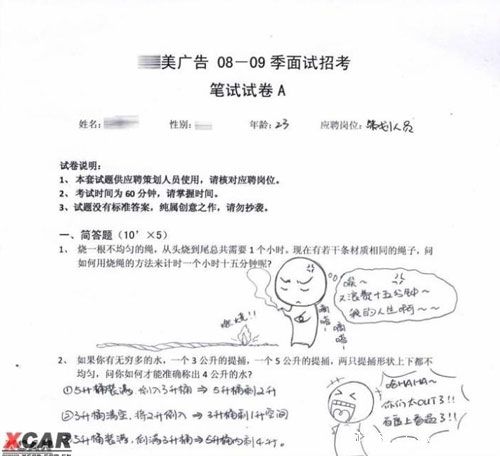 美广告 08－09 季面试招考
笔试试卷 A
姓名： 性别： 年龄：23 应聘岗位：策划人员
试卷说明：
1、 本套试题供应聘策划人员使用，请核对应聘岗位。
2、 考试时间为 60 分钟，请掌握时间。
3、 试题没有标准答案，纯属创意之作，请勿抄袭。
一、简答题（10'×5）
1、 烧一根不均匀的绳，从头烧到尾总共需要 1 个小时。现在有若干条材质相同的绳子，问
如何用烧绳的方法来计时一个小时十五分钟呢？
唉～
又浪费十五分钟～
我的人生啊～～
嘀嗒
嘀嗒
燃烧！
2、 如果你有无穷多的水，一个 3 公升的提捅，一个 5 公升的提捅，两只提捅形状上下都不
均匀，问你如何才能准确称出 4 公升的水？
①5升桶装满，倒入3升桶 ⇒ 5升桶剩2升
②3升桶清空，将2升倒入 ⇒ 3升桶剩1升空间
③5升桶装满，倒满3升桶 ⇒ 5升桶内剩4升。
哈HAHA～
你们太OUT了!!
XCAR